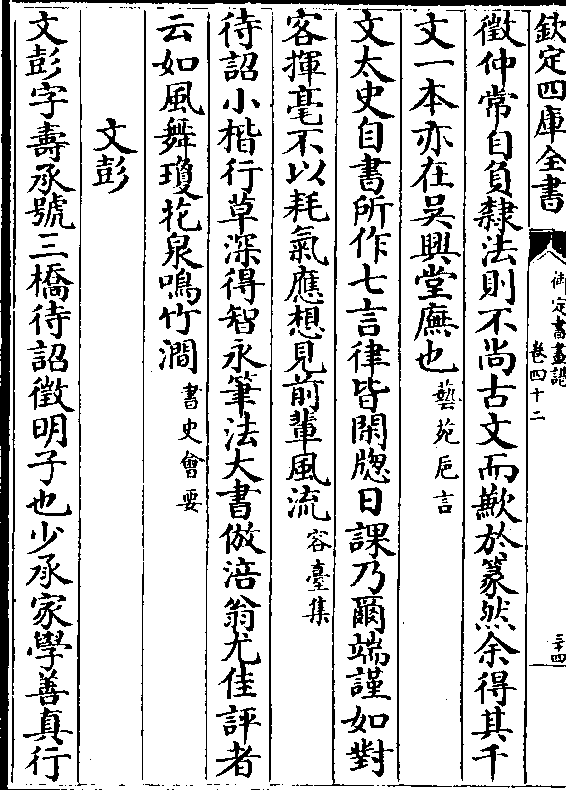 欽定四庫全書
御定書畫譜
卷四十二
三十四
徵仲常自負隸法則不尚古文而歉於篆然余得其千
文一本亦在吳興堂廡也藝苑巵言
文太史自書所作七言律皆閑牕日課乃爾端謹如對
客揮毫不以耗氣應想見前輩風流容臺集
待詔小楷行草深得智永筆法大書倣涪翁尤佳評者
云如風舞瓊花泉鳴竹澗書史會要
文彭
文彭字壽承號三橋待詔徵明子也少承家學善真行